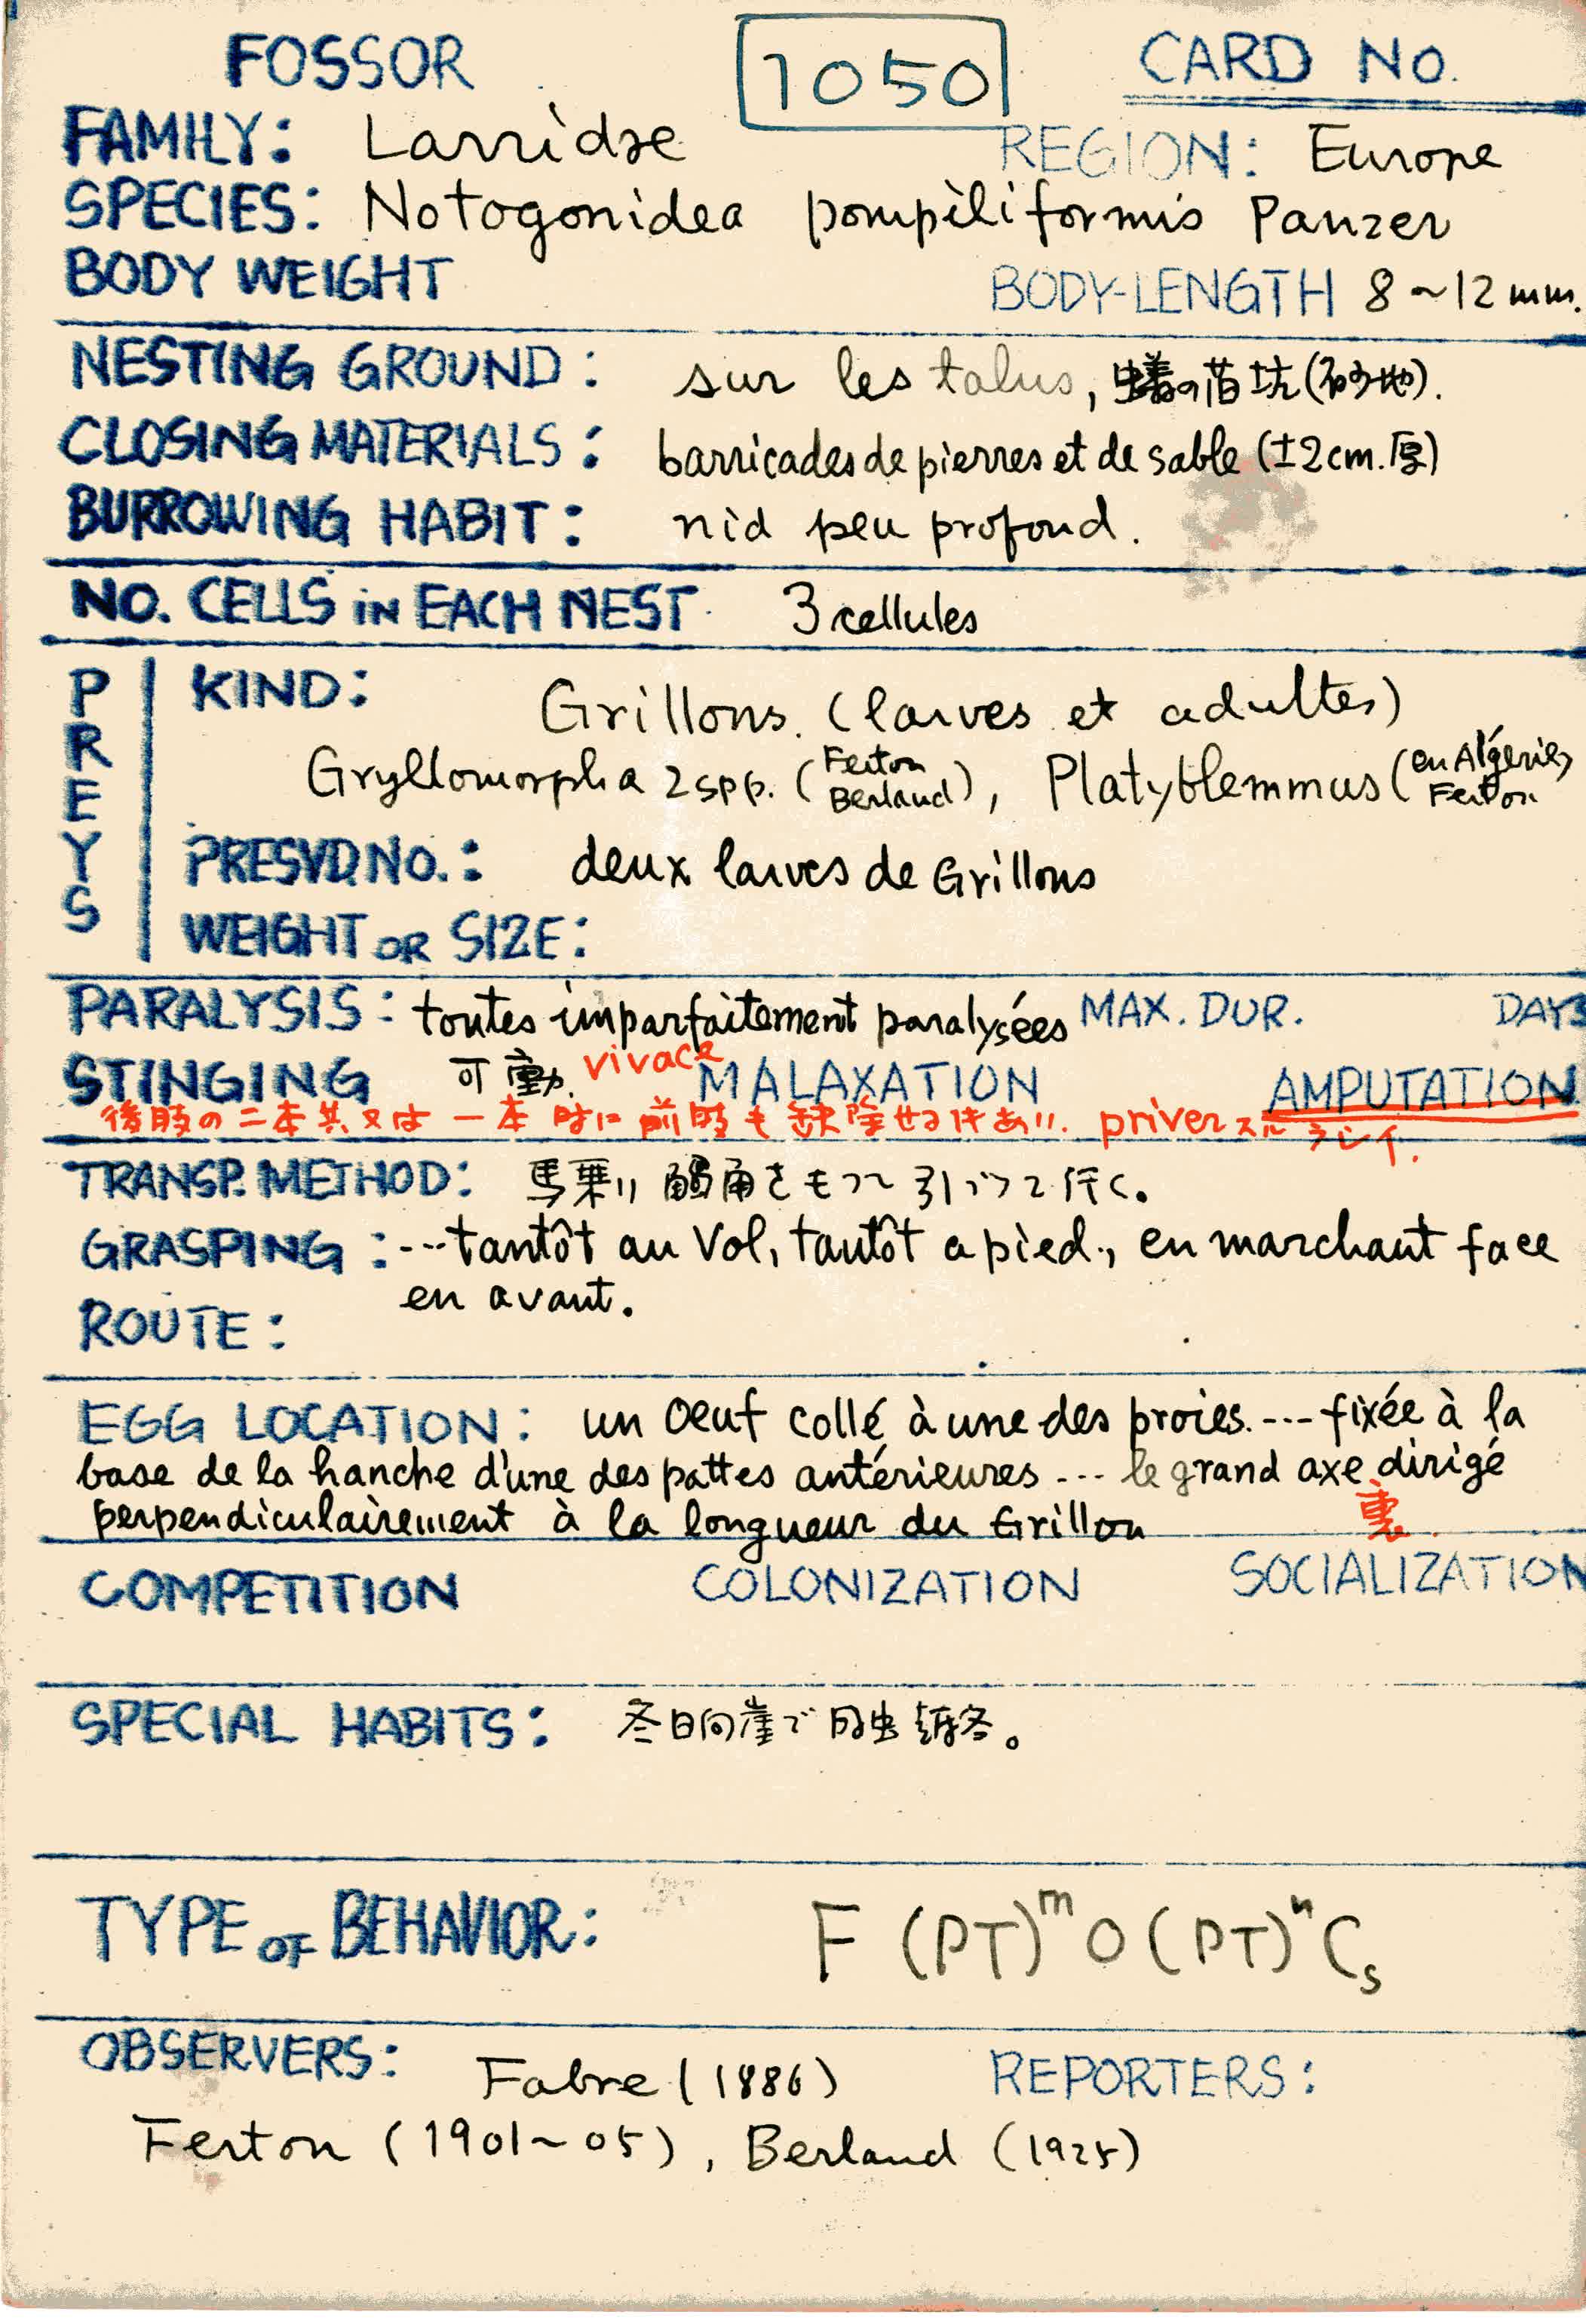 FOSSOR 1050 CARD NO.
FAMILY: Larridae REGION: Europe
SPECIES: Notogonidea pompiliformis Panzer
BODY WEIGHT BODY-LENGTH 8~12mm.
NESTING GROUND: sur les talus, 蟻の古坑(砂地).
CLOSING MATERIALS: barricades de pierres et de sable (±2cm.厚)
BURROWING HABIT: nid peu profond.
NO. CELLS in EACH NEST 3 cellules
PREYS
KIND: Grillons. (larves et adultes)
Gryllomorpha 2 spp. (Ferton Berland), Platyblemmus (en Algérie, Ferton
PRESVD.NO.: deux larves de Grillons
WEIGHT OR SIZE:
PARALYSIS: toutes imparfaitement paralysées MAX. DUR. DAYS
STINGING 可動. vivace MALAXATION AMPUTATION
後肢の二本共又は一本 時に前肢も缺除せるはあり. priverスルラシイ.
TRANSP. METHOD: 馬乗り 觸角をもって引づって行く。
GRASPING: ---tantôt au vol, tantôt a pied, en marchant face
en avant.
ROUTE:
EGG LOCATION: un oeuf collé à une des proies. --- fixée à la
base de la hanche d'une des pattes antérieures --- le grand axe dirigé
perpendiculairement à la longueur du Grillon 裏
COMPETITION COLONIZATION SOCIALIZATION
SPECIAL HABITS: 冬日向崖で成虫越冬。
TYPE OF BEHAVIOR: F (PT)ᵐ O (PT)ⁿ Cₛ
OBSERVERS: Fabre (1886) REPORTERS:
Ferton (1901~05), Berland (1925)